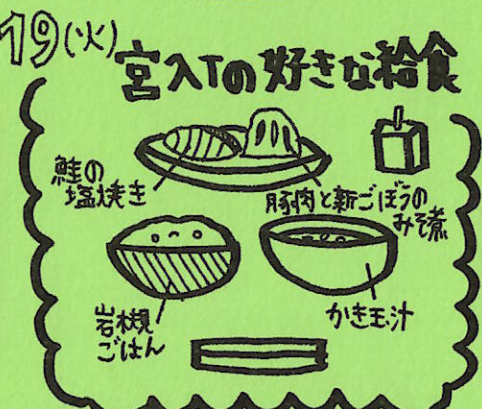 19(火)
宮入Tの好きな給食
鮭の
塩焼き
豚肉と新ごぼうの
みそ煮
岩槻
ごはん
かき玉汁